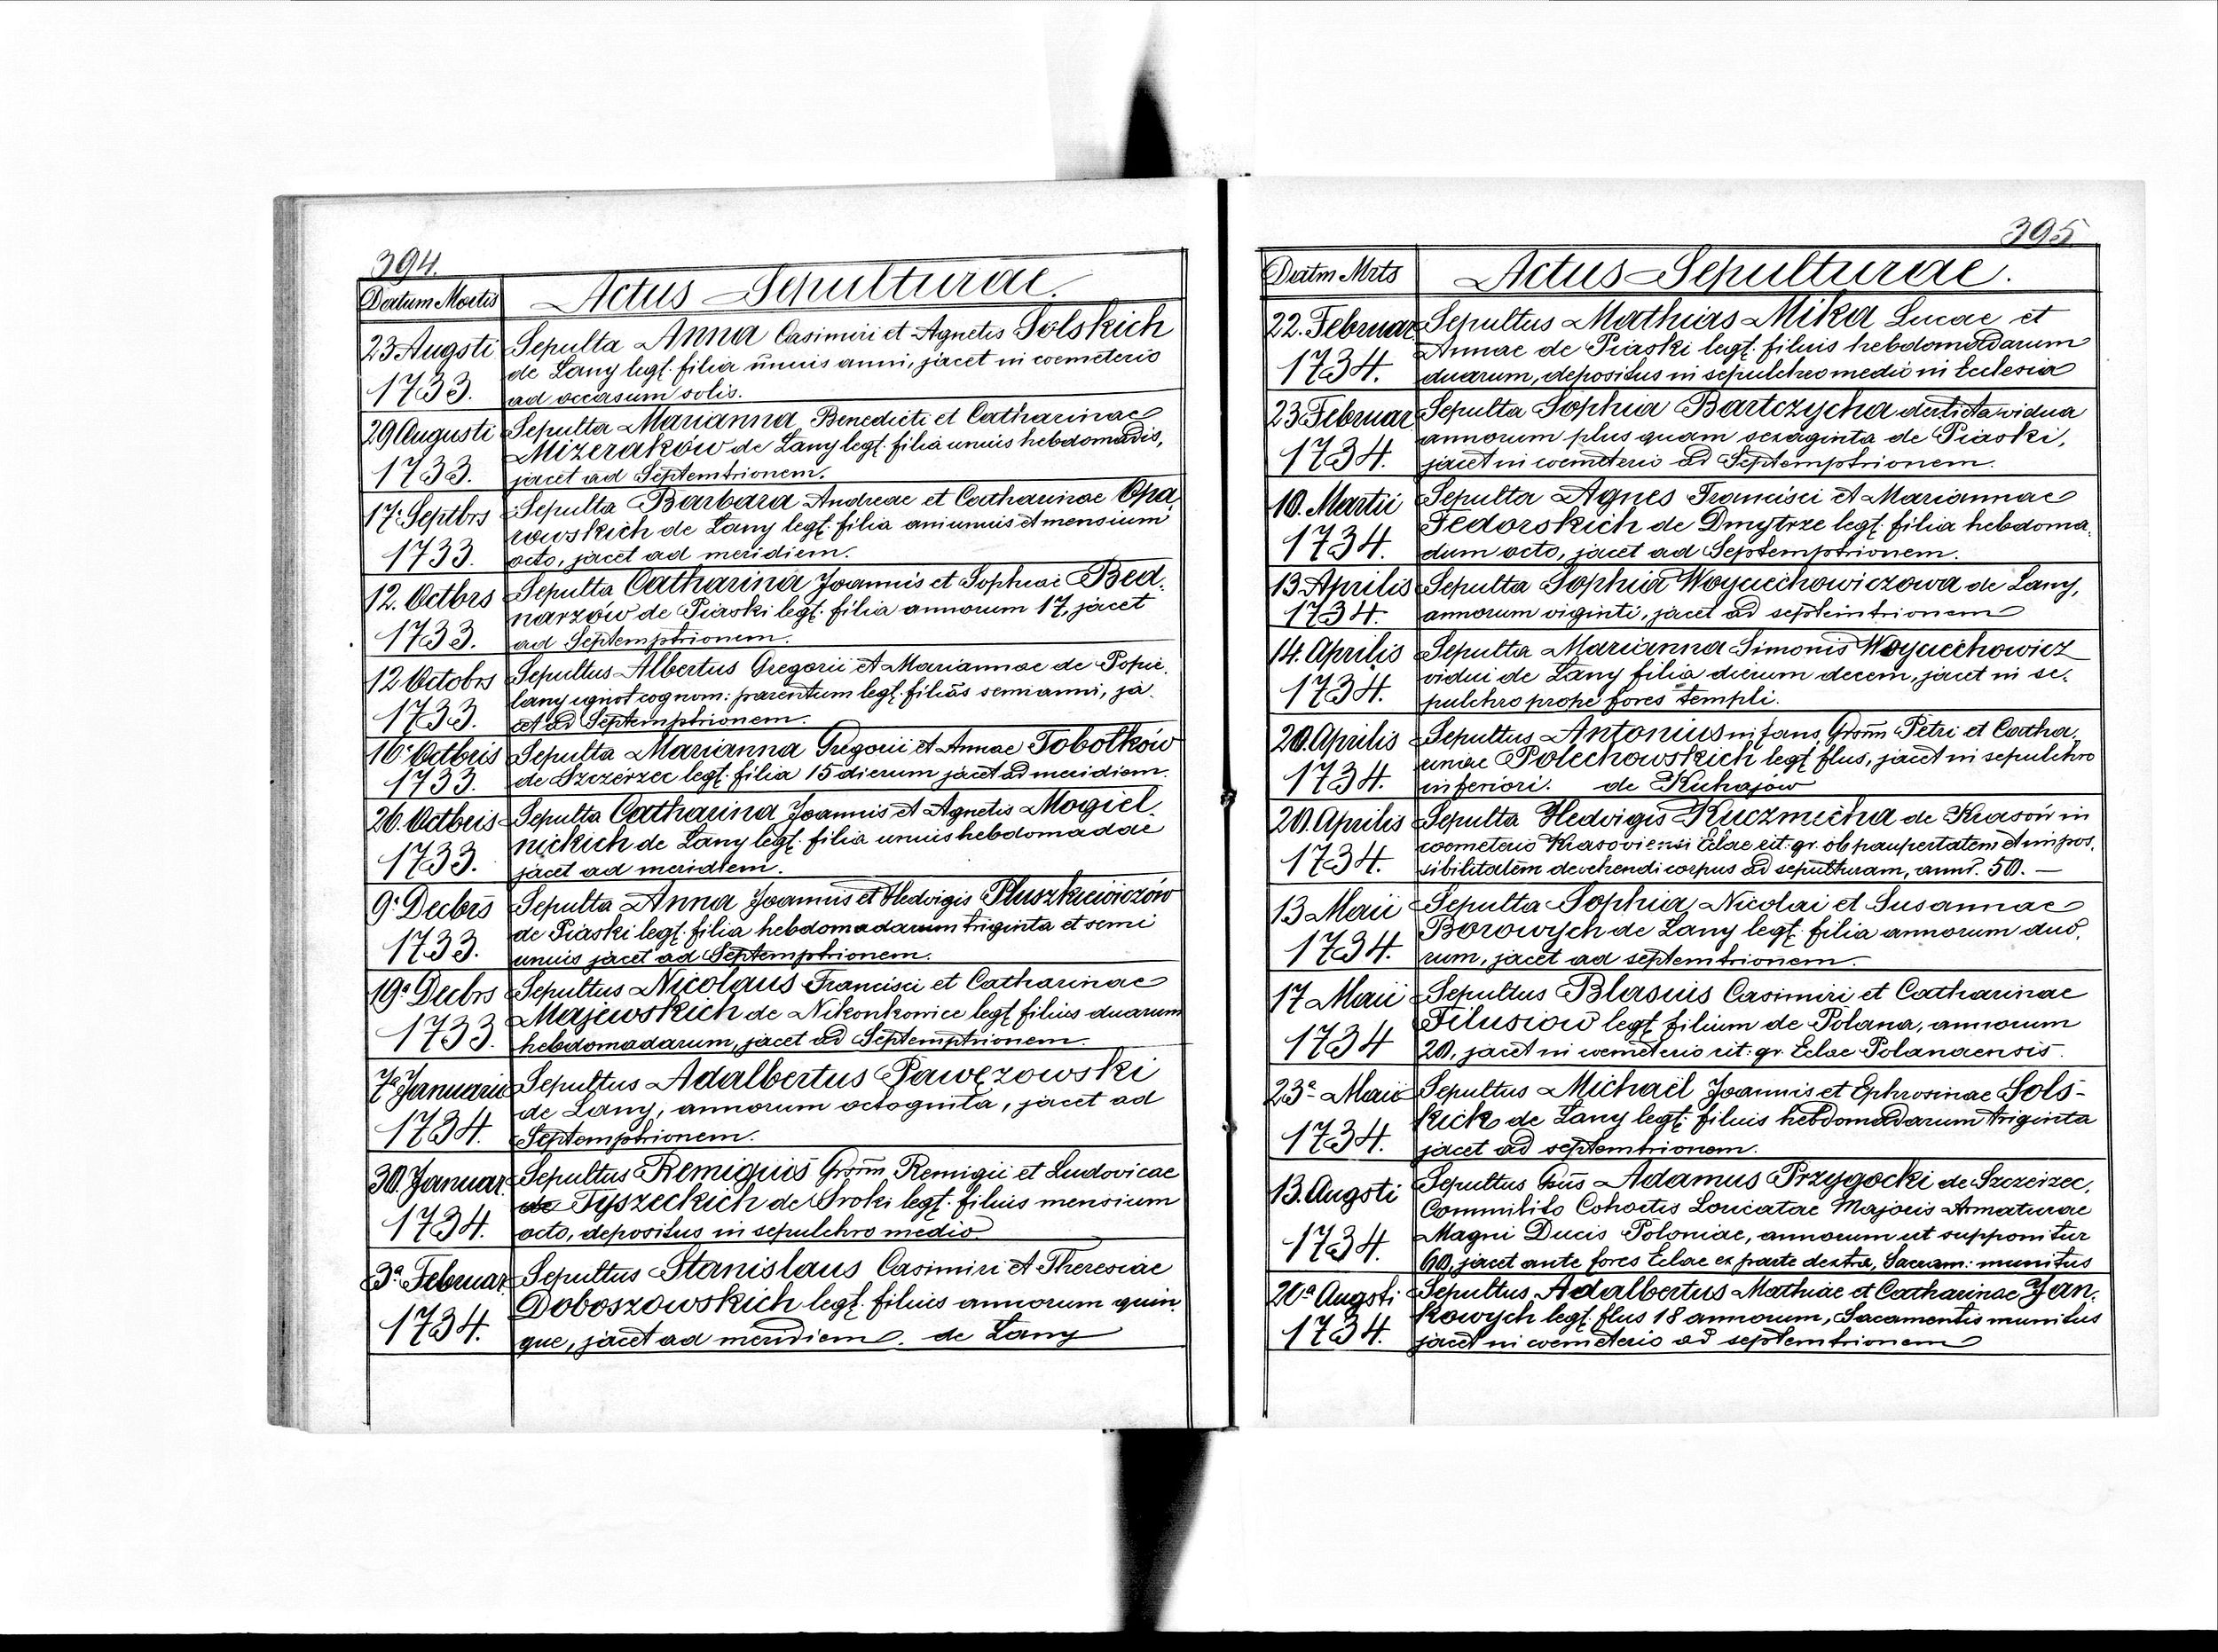 394.
Datum Mortis
Actus Sepulturae.
23 Augsti
1733.
Sepulta Anna Casimiri et Agnetis Solskich
de Lany legt. filia unius anni, jacet in coemeterio
ad occasum solis.
29 Augusti
1733.
Sepulta Marianna Benedicti et Catharinae
Mizeraków de Lany legt. filia unius hebdomadis,
jacet ad Septemtrionem.
17. Septbrs
1733.
Sepulta Barbara Andreae et Catharinae Opa
rowskich de Lany legt. filia ani unius et mensium
octo, jacet ad meridiem.
12. Octbrs
1733.
Sepulta Catharina Joannis et Sophiae Bed.
narzów de Piaski legt. filia annorum 17, jacet
ad Septemptrionem.
12 Octobrs
1733.
Sepultus Albertus Gregorii et Mariannae de Popie.
lany ignot cognom: parentum legt. filiûs semianni, ja.
cet ad Septemptrionem.
16. Octbris
1733.
Sepulta Marianna Gregorii et Annae Tobolków
de Szczerzec legt. filia 15 dierum jacet ad meridiem.
26. Octbris
1733.
Sepulta Catharina Joannis et Agnetis Mogiel.
nickich de Lany legt. filia unius hebdomadae
jacet ad meridiem.
9. Decbrs
1733.
Sepulta Anna Joannis et Hedvigis Pluszkiewiczów
de Piaski legt. filia hebdomadarum triginta et semi
unius jacet ad Septemptrionem.
19a Decbrs
1733.
Sepultus Nicolaus Francisci et Catharinae
Majewskich de Nikonkowice legt filius duarum
hebdomadarum, jacet ad Septemptrionem.
7a Januarii
1734.
Sepultus Adalbertus Pawęzowski
de Lany, annorum octoginta, jacet ad
Septemptrionem.
30. Januar.
1734.
Sepultus Remigius Grosm Remigii et Ludovicae
de Tyszeckich de Sroki legt. filius mensium
octo, depositus in sepulchro medio
3a Februar
1734.
Sepultus Stanislaus Casimiri et Theresiae
Doboszowskich legt. filius annorum quin
que, jacet ad meridiem. de Lany
395
Datm Mrts
Actus Sepulturae.
22. Februar
1734.
Sepultus Mathias Mika Lucae et
Annae de Piaski legt. filius hebdomadarum
duarum, depositus in sepulchro medio in Ecclesia
23 Februar
1734.
Sepulta Sophia Bartczycha derlicta vidua
annorum plus quam sexaginta de Piaski,
jacet in coemeterio ad Septemptrionem.
10. Martii
1734.
Sepulta Agnes Francisci et Mariannae
Fedorskich de Dmytrze legt. filia hebdoma.
dum octo, jacet ad Septemptrionem.
13 Aprilis
1734.
Sepulta Sophia Woyciechowiczowa de Lany,
annorum viginti, jacet ad septemtrionem
14. Aprilis
1734.
Sepulta Marianna Simonis Woyciechowicz
vidui de Lany filia dierum decem, jacet in se.
pulchro prope fores templi.
20. Aprilis
1734.
Sepultus Antonius infans Grosm Petri et Catha.
rinae Polechowskich legt flus, jacet in sepulchro
inferiori. de Kuhajów
20. Aprilis
1734.
Sepulta Hedvigis Kuczmicha de Krasów in
coometerio Krasoviensi Eclae rit: gr. ob paupertatem et impos.
sibilitatem devehendi corpus ad sepulturam, anno. 50. —
13 Maii
1734.
Sepulta Sophia Nicolai et Susannae
Borowych de Lany legt. filia annorum duo.
rum, jacet ad septemtrionem.
17 Maii
1734
Sepultus Blasius Casimiri et Catharinae
Filusiow legt filium de Polana, annorum
20, jacet in coemeterio rit: gr. Eclae Polanaensis.
23a Maii
1734.
Sepultus Michaël Joannis et Ephrosinae Sols-
kich de Lany legt: filius hebdomadarum triginta
jacet ad septemtrionem.
13. Augsti
1734.
Sepultus Gnus Adamus Przygocki de Szczerzec,
Commilito Cohortis Loricatae Majoris Armaturae
Magni Ducis Poloniae, annorum ut supponitur
60, jacet ante fores Eclae ex parte dextra, Sacram: munitus
20a Augsti
1734.
Sepultus Adalbertus Mathiae et Catharinae Jan.
kowych legt. flus 18 annorum, Sacamentis munitus
jacet in coemeterio ad septemtrionem